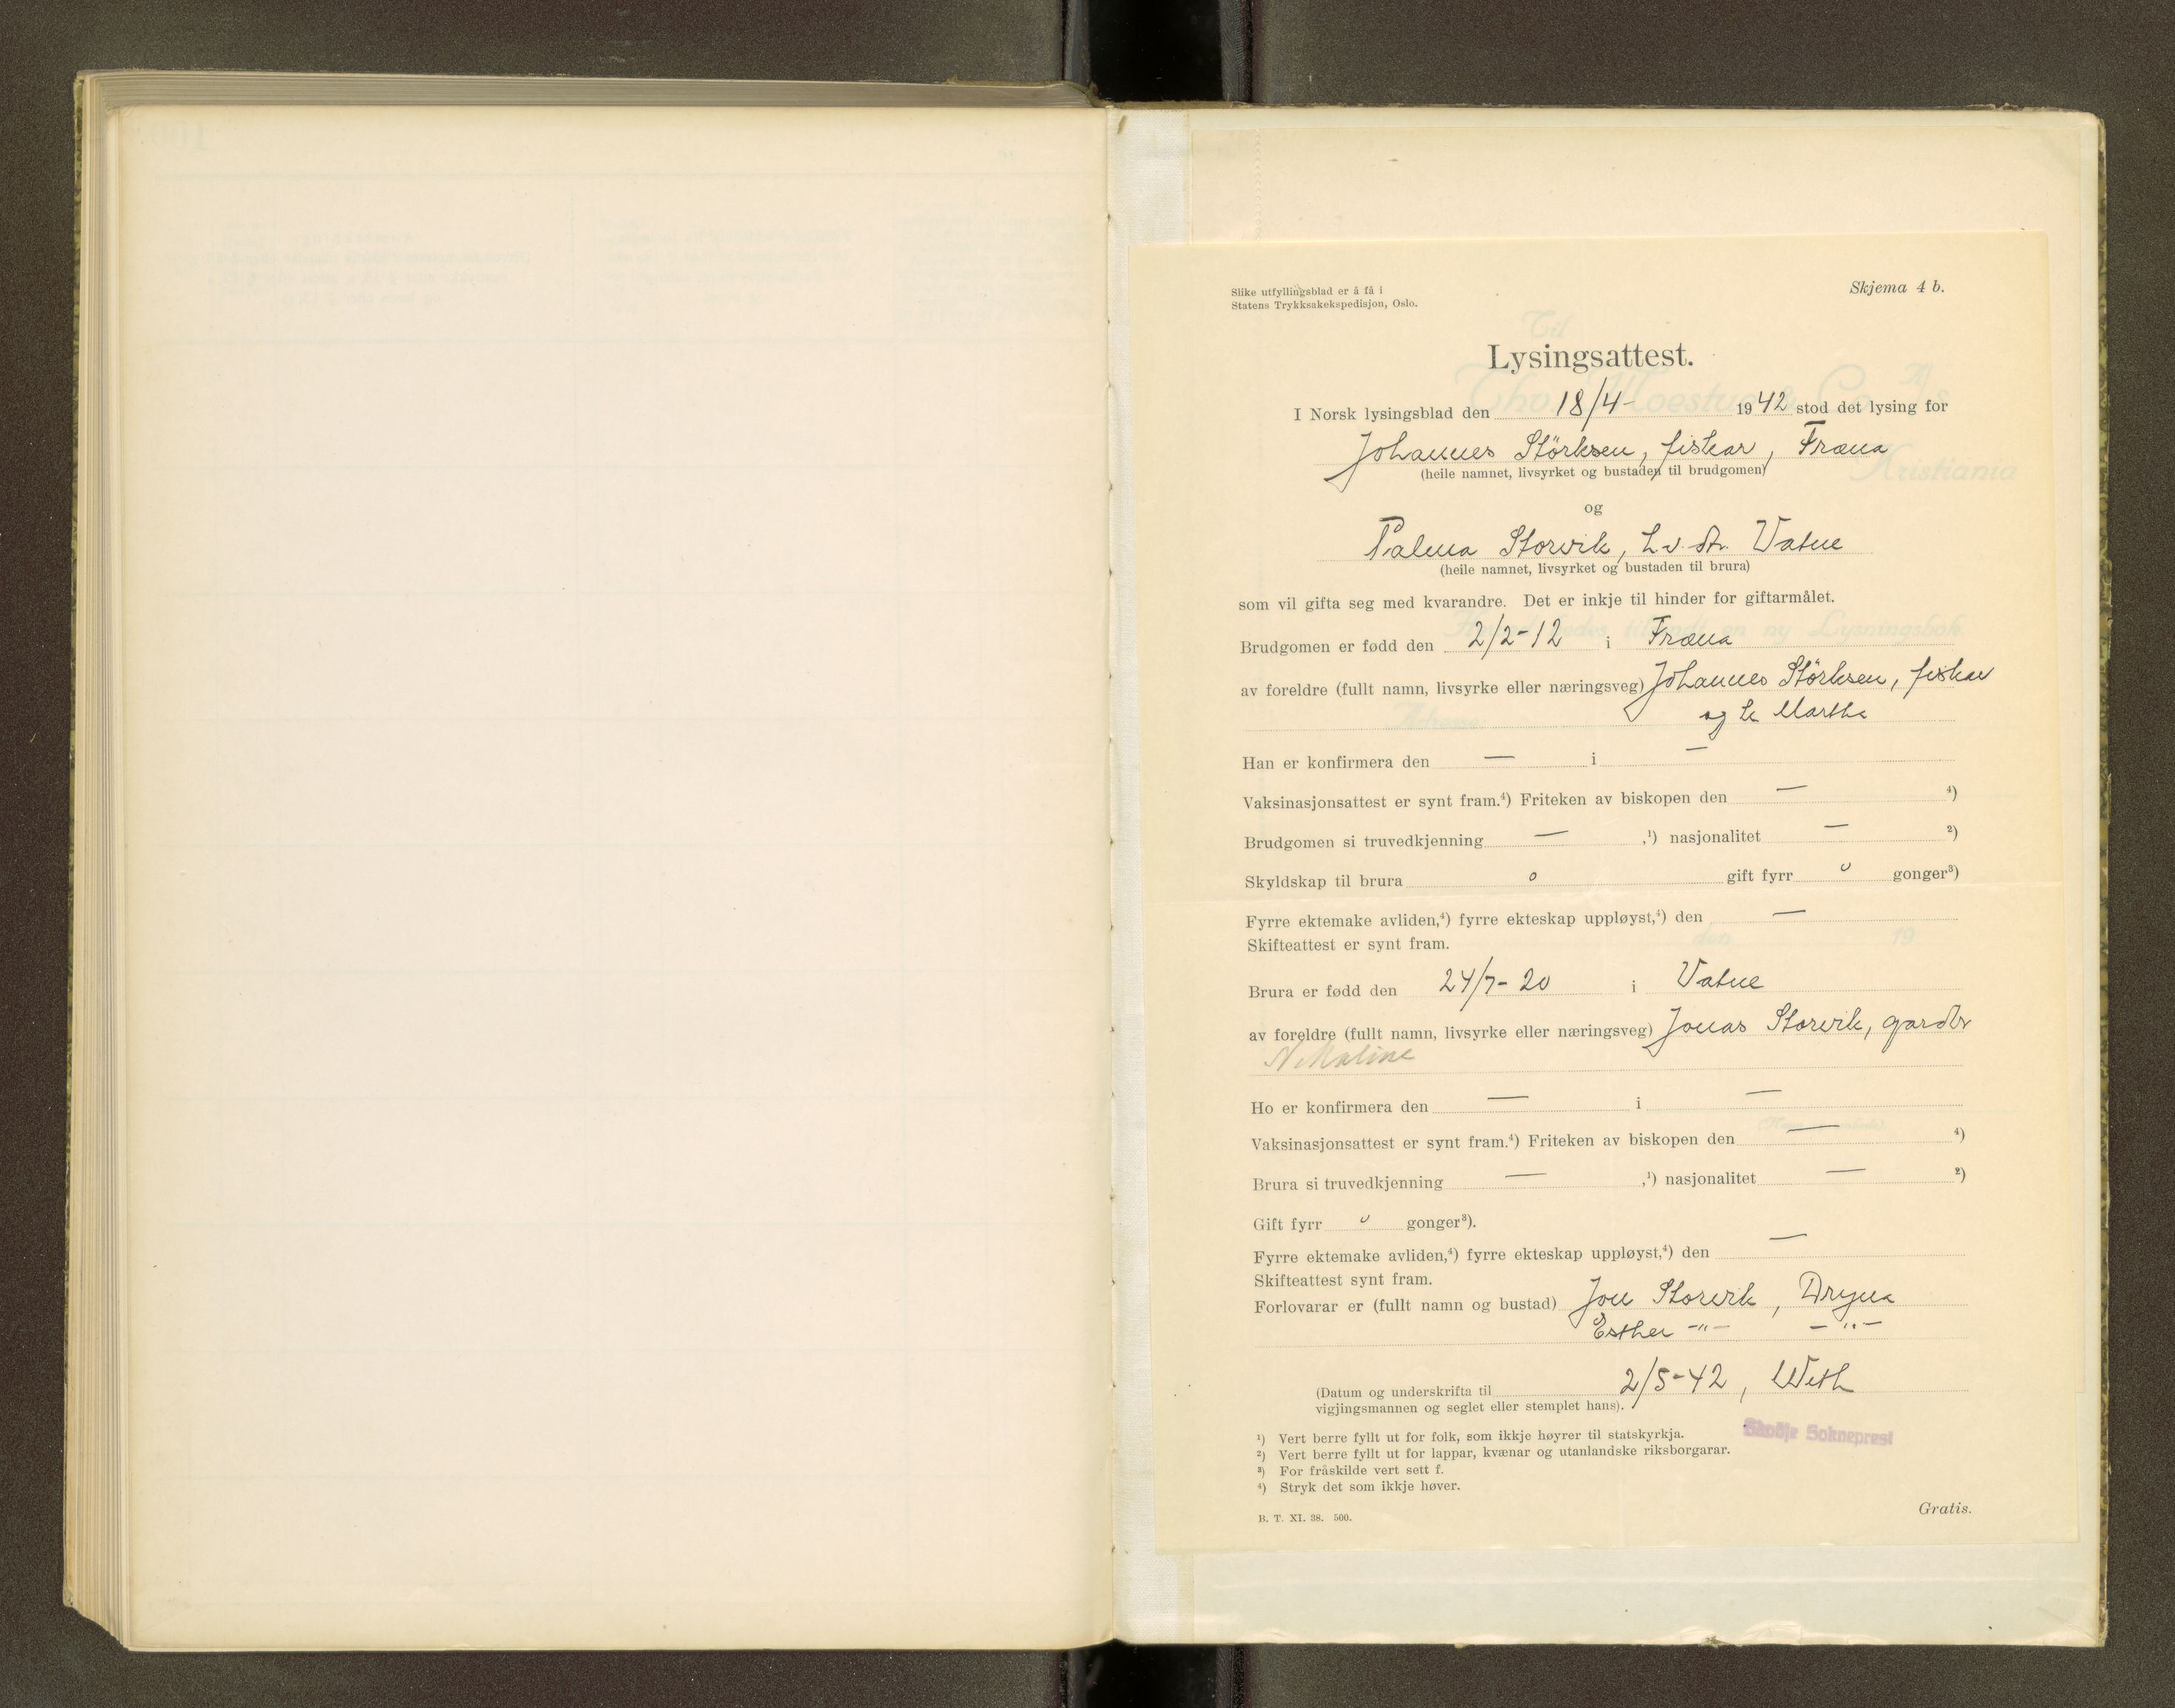 Slike utfyllingsblad er å få i
Statens Trykksakekspedisjon, Oslo.
Skjema 4 b.
Lysingsattest.
I Norsk lysingsblad den 18/4- 1942 stod det lysing for
Johannes Störksen, fiskar, Fræna
(heile namnet, livsyrket og bustaden til brudgomen)
og
Palma Storvik, h.v. st. Vatne
(heile namnet, livsyrket og bustaden til brura)
som vil gifta seg med kvarandre. Det er inkje til hinder for giftarmålet.
Brudgomen er fødd den 2/2-12 i Fræna
av foreldre (fullt namn, livsyrke eller næringsveg) Johannes Störksen, fiskar
og h. Marthe
Han er konfirmera den — i —
Vaksinasjonsattest er synt fram.⁴) Friteken av biskopen den — ⁴)
Brudgomen si truvedkjenning — ,¹) nasjonalitet — ²)
Skyldskap til brura o gift fyrr o gonger³)
Fyrre ektemake avliden,⁴) fyrre ekteskap uppløyst,⁴) den —
Skifteattest er synt fram.
Brura er fødd den 24/7-20 i Vatne
av foreldre (fullt namn, livsyrke eller næringsveg) Jonas Storvik, gardbr
Maline
Ho er konfirmera den — i —
Vaksinasjonsattest er synt fram.⁴) Friteken av biskopen den — ⁴)
Brura si truvedkjenning — ,¹) nasjonalitet — ²)
Gift fyrr o gonger³).
Fyrre ektemake avliden,⁴) fyrre ekteskap uppløyst,⁴) den —
Skifteattest synt fram.
Forlovarar er (fullt namn og bustad) Jon Storvik, Dryna
Esther -"- -"-
(Datum og underskrifta til 2/5-42, Weth
vigjingsmannen og seglet eller stemplet hans).
Skodje Sokneprest
¹) Vert berre fyllt ut for folk, som ikkje høyrer til statskyrkja.
²) Vert berre fyllt ut for lappar, kvænar og utanlandske riksborgarar.
³) For fråskilde vert sett f.
⁴) Stryk det som ikkje høver.
Gratis.
B. T. XI. 38. 500.